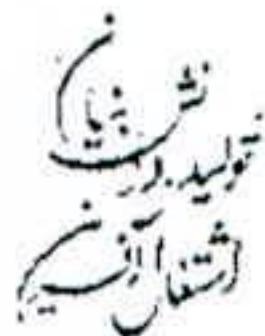 تولید، دانش بنیان
اشتغال آفرین